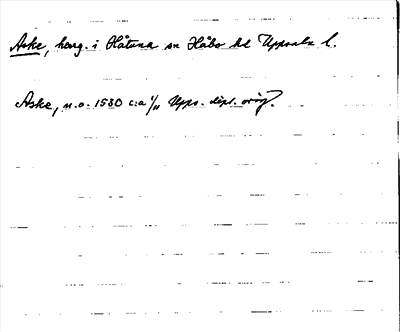 Aske, herrg. i Håtuna sn Håbo hd Uppsala l.
Aske, n.o. 1530 c:a 1/11 Upps. dipl. orig.